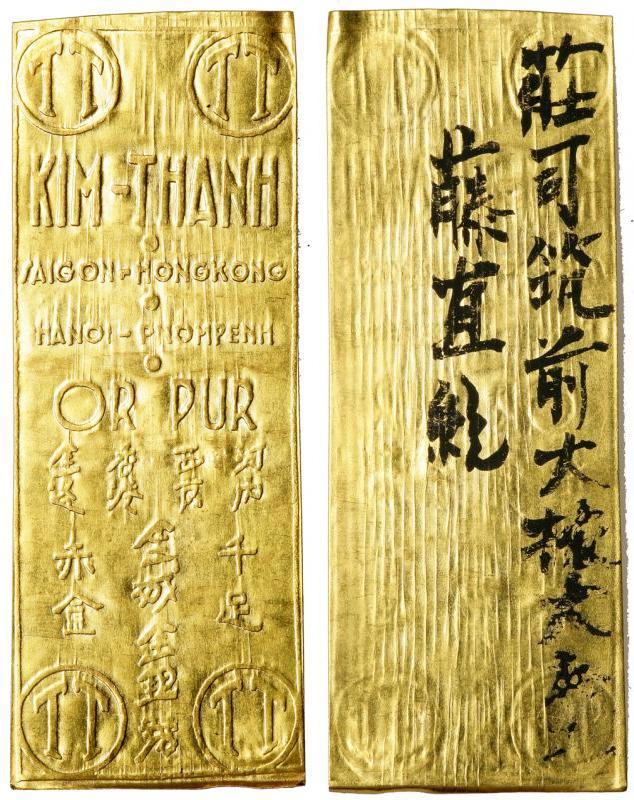 TT TT
KIM-THANH
SAIGON-HONGKONG
HANOI-PNOMPENH
OR PUR
千足
金城金
赤金
TT TT
莊司筑前大掾大
藤直胤